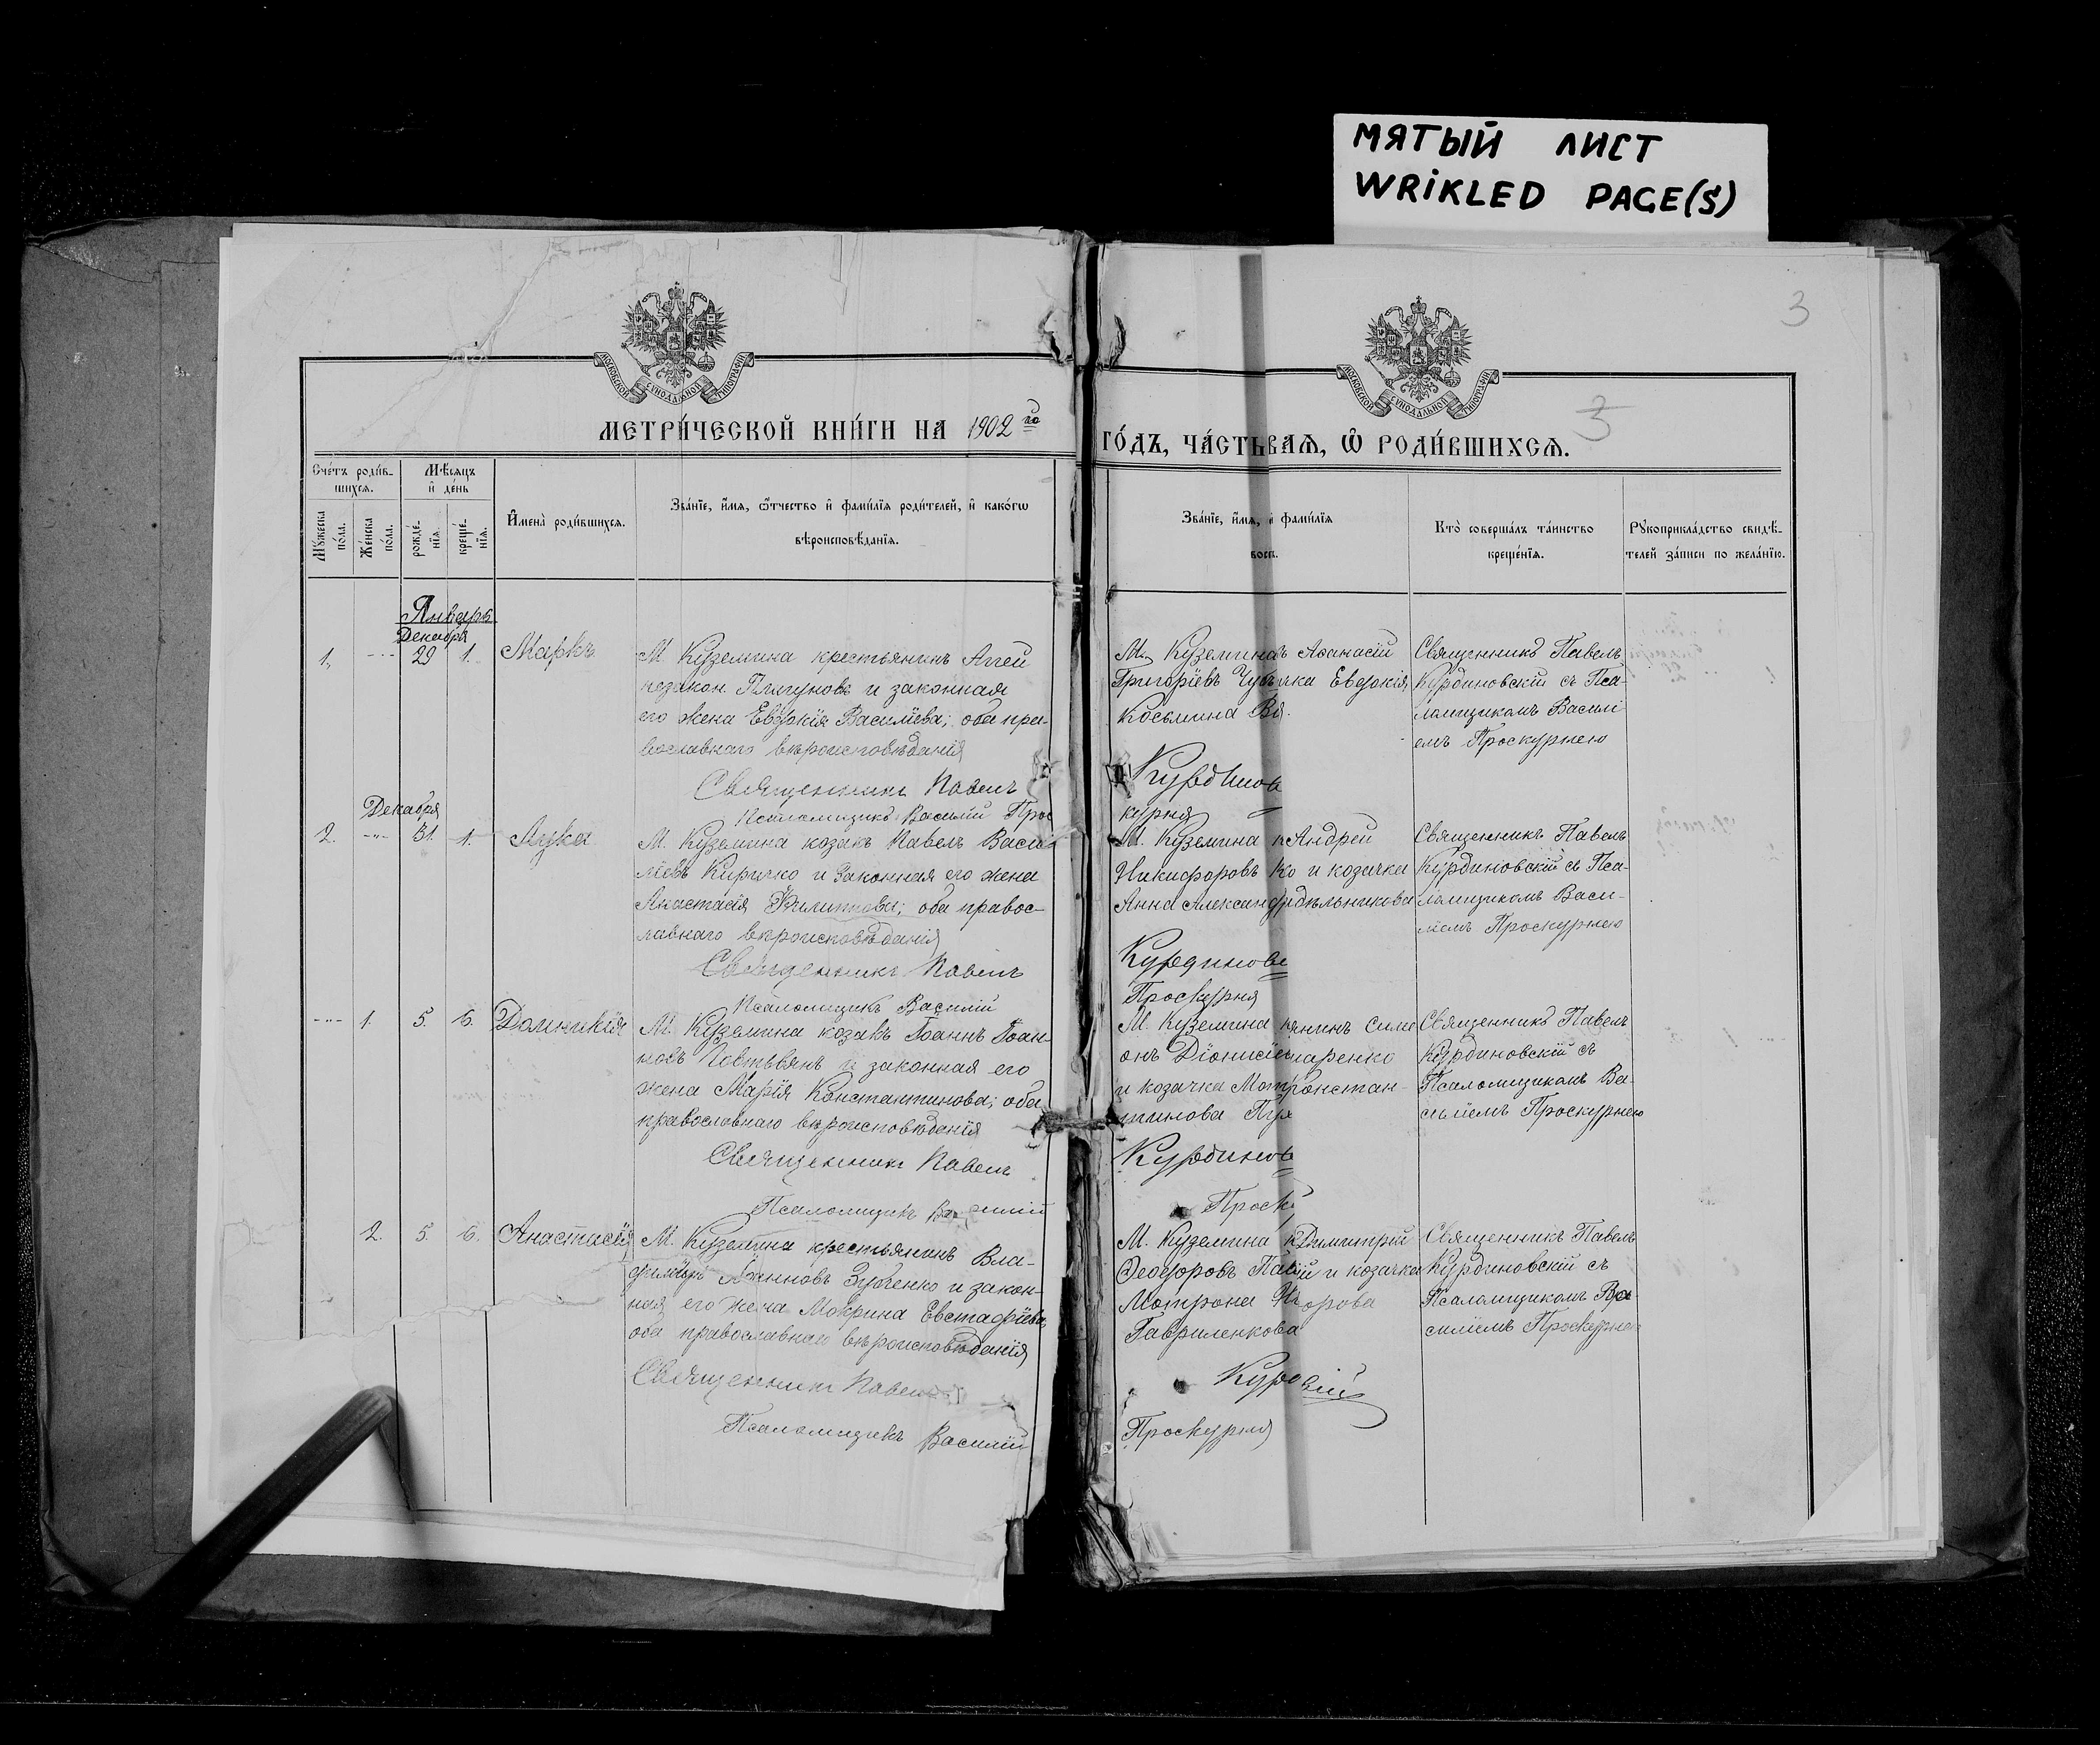 МЯТЫЙ ЛИСТ
WRIKLED PAGE(S)
3
МОСКОВСКОЙ СУНОДАЛЬНОЙ ТИПОГРАФІИ
МОСКОВСКОЙ СУНОДАЛЬНОЙ ТИПОГРАФІИ
3
МЕТРИ́ЧЕСКОЙ КНИ́ГИ НА 1902 го
ГО́ДЪ, ЧА́СТЬ ВАѦ, Ѿ РОДИ́ВШИХСѦ.
Сче́тъ роди́в-
шихсѧ.
Мѣсѧцъ
и де́нь
Мꙋ́жеска
по́ла.
Же́нска
по́ла.
рожде́-
нїѧ.
креще́-
нїѧ.
Имена̀ роди́вшихсѧ.
Зва́нїе, и́мѧ, ѻ́тчество и фами́лїѧ роди́телей, и како́гѡ
вѣроисповѣ́данїѧ.
Зва́нїе, и́мѧ, и фами́лїѧ
восп.
Кто̀ соверша́лъ та́инство
креще́нїѧ.
Рꙋкоприкла́дство свидѣ́-
телей за́писи по жела́нїю.
Январь
Декабря
1. 29 1. Маркъ
М. Куземина крестьянинъ Аггей
незакон. и законная
его жена Евдокія Василіева; оба пра-
вославнаго вѣроисповѣданія
Священникъ Павелъ
Псаломщикъ Василій Прос
М. Куземина Аѳанасій
Григоріевъ Евдокія
Косьмина
Курдинов
курня
Священникъ Павелъ
Курдиновскій съ Пса-
ломщикомъ Василі
емъ Проскурнею
Декабря
2. 31. 1. Лука
М. Куземина козакъ Павелъ Васи
ліевъ Киричко и законная его жена
Анастасія Филиппова; оба правос-
лавнаго вѣроисповѣданія
Священникъ Павелъ
Псаломщикъ Василій
М. Куземина к Андрей
Никифоровъ ко и козачка
Анна Александр
Курдинов
Проскурня
Священникъ Павелъ
Курдиновскій съ Пса-
ломщикомъ Васи-
ліемъ Проскурнею
1. 5. 6. Домникія
М. Куземина козакъ Іоаннъ Іоан-
новъ и законная его
жена Марія Константинова; оба
православнаго вѣроисповѣданія
Священникъ Павелъ
Псаломщикъ Василій
М. Куземина Симе
онъ Діонисіе
и козачка Мотр онстан-
тинова
Курдинов
Проск
Священникъ Павелъ
Курдиновскій съ
Псаломщикомъ Ва-
силіемъ Проскурнею
2. 5. 6. Анастасія
М. Куземина крестьянинъ Вла-
диміръ Іоанновъ Зубенко и закон-
ная его жена Мокрина Евстафіева,
оба православнаго вѣроисповѣданія
Священникъ Павелъ
Псаломщикъ Василій
М. Куземина к Димитрій
Ѳеодоровъ и козачка
Мотрона
Гавриленкова
Курд вій
Проскурня
Священникъ Павелъ
Курдиновскій съ
Псаломщикомъ Ва-
силіемъ Проскурнею